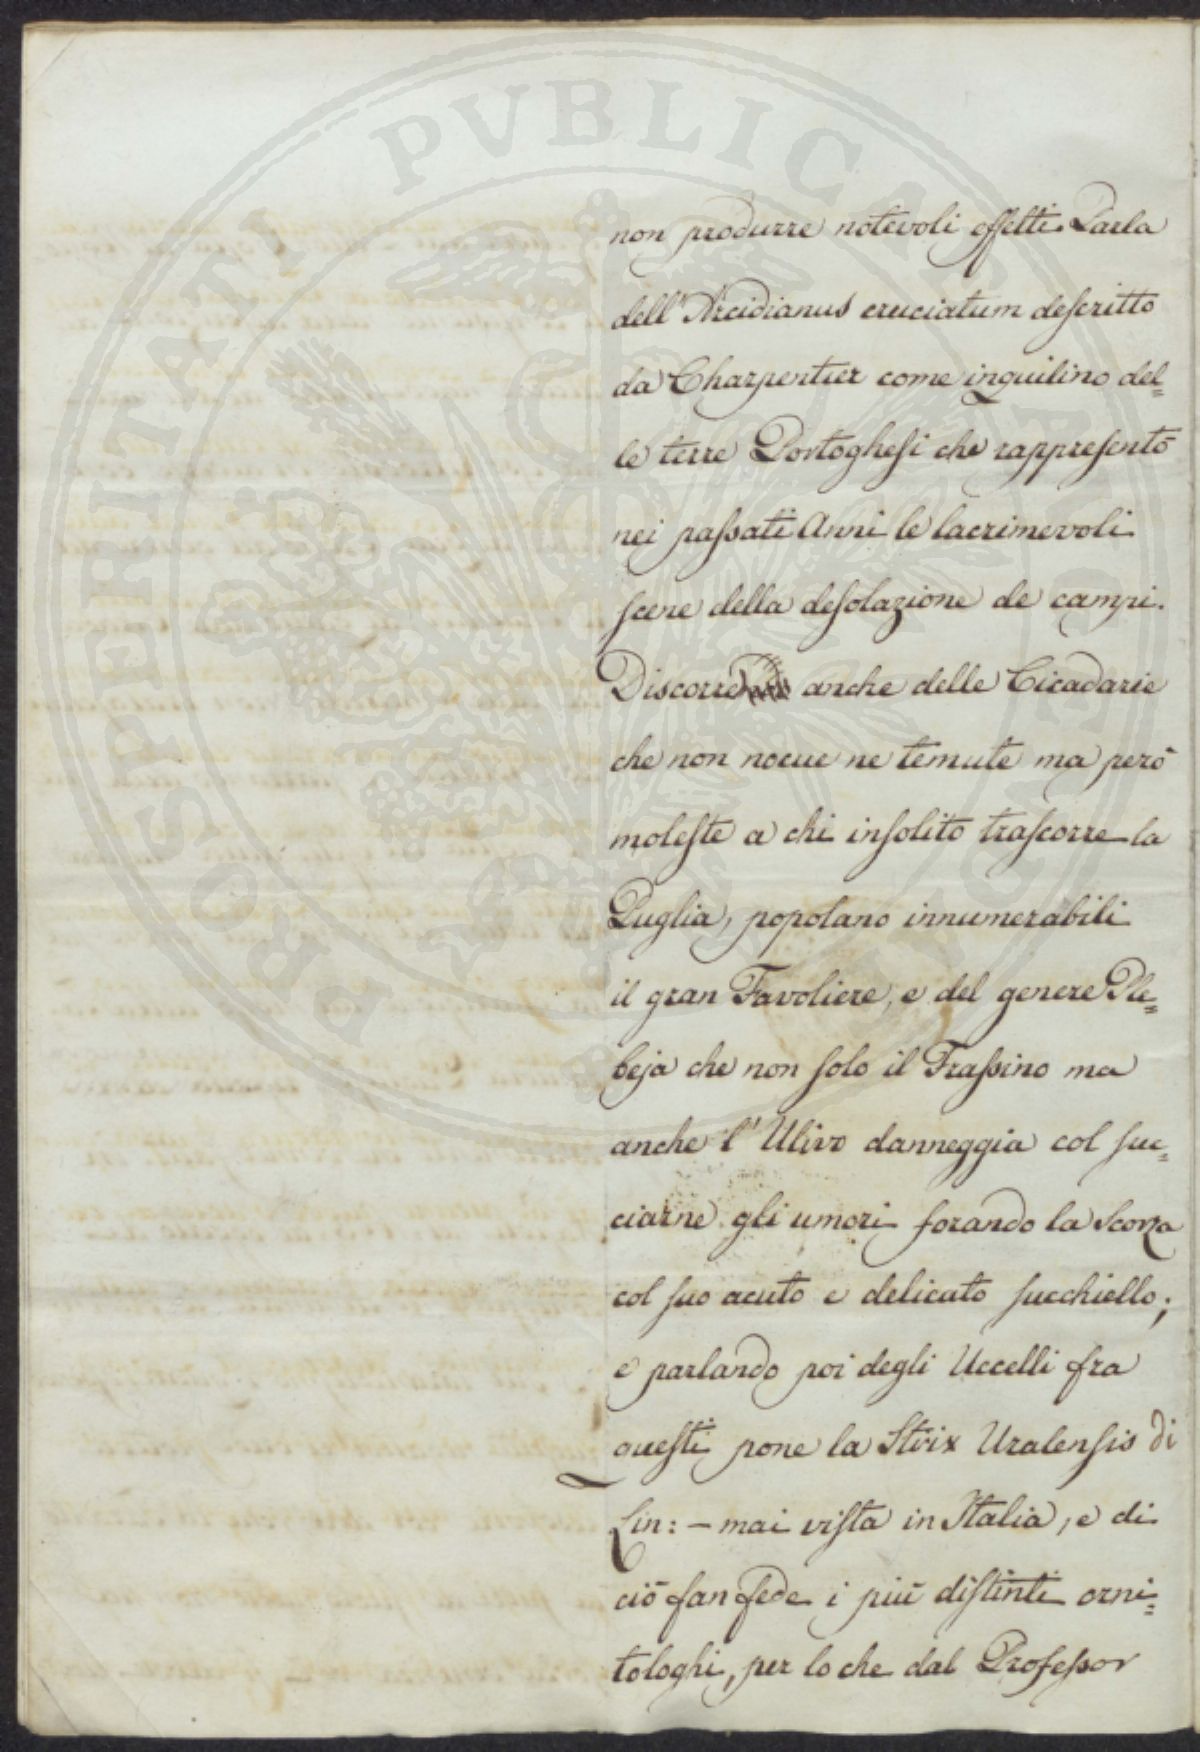 PROSPERITATI PVBLICAE AVGENDAE
non produrre notevoli effetti. Parla
dell'Arcidianus cruciatum descritto
da Charpentier come inquilino del=
le terre Portoghesi che rappresentò
nei passati Anni le lacrimevoli
scene della desolazione de campi.
Discorre anche delle Cicadarie
che non nocue ne temute ma però
moleste a chi insolito trascorre la
Puglia, popolano innumerabili
il gran Tavoliere, e del genere Ple=
beja che non solo il Frassino ma
anche l'Ulivo danneggia col suc=
ciarne gli umori forando la Scorza
col suo acuto e delicato succhiello;
e parlando poi degli Uccelli fra
questi pone la Strix Uralensis di
Lin: – mai vista in Italia, e di
ciò fan fede i più distinti orni=
tologhi, per lo che dal Professor